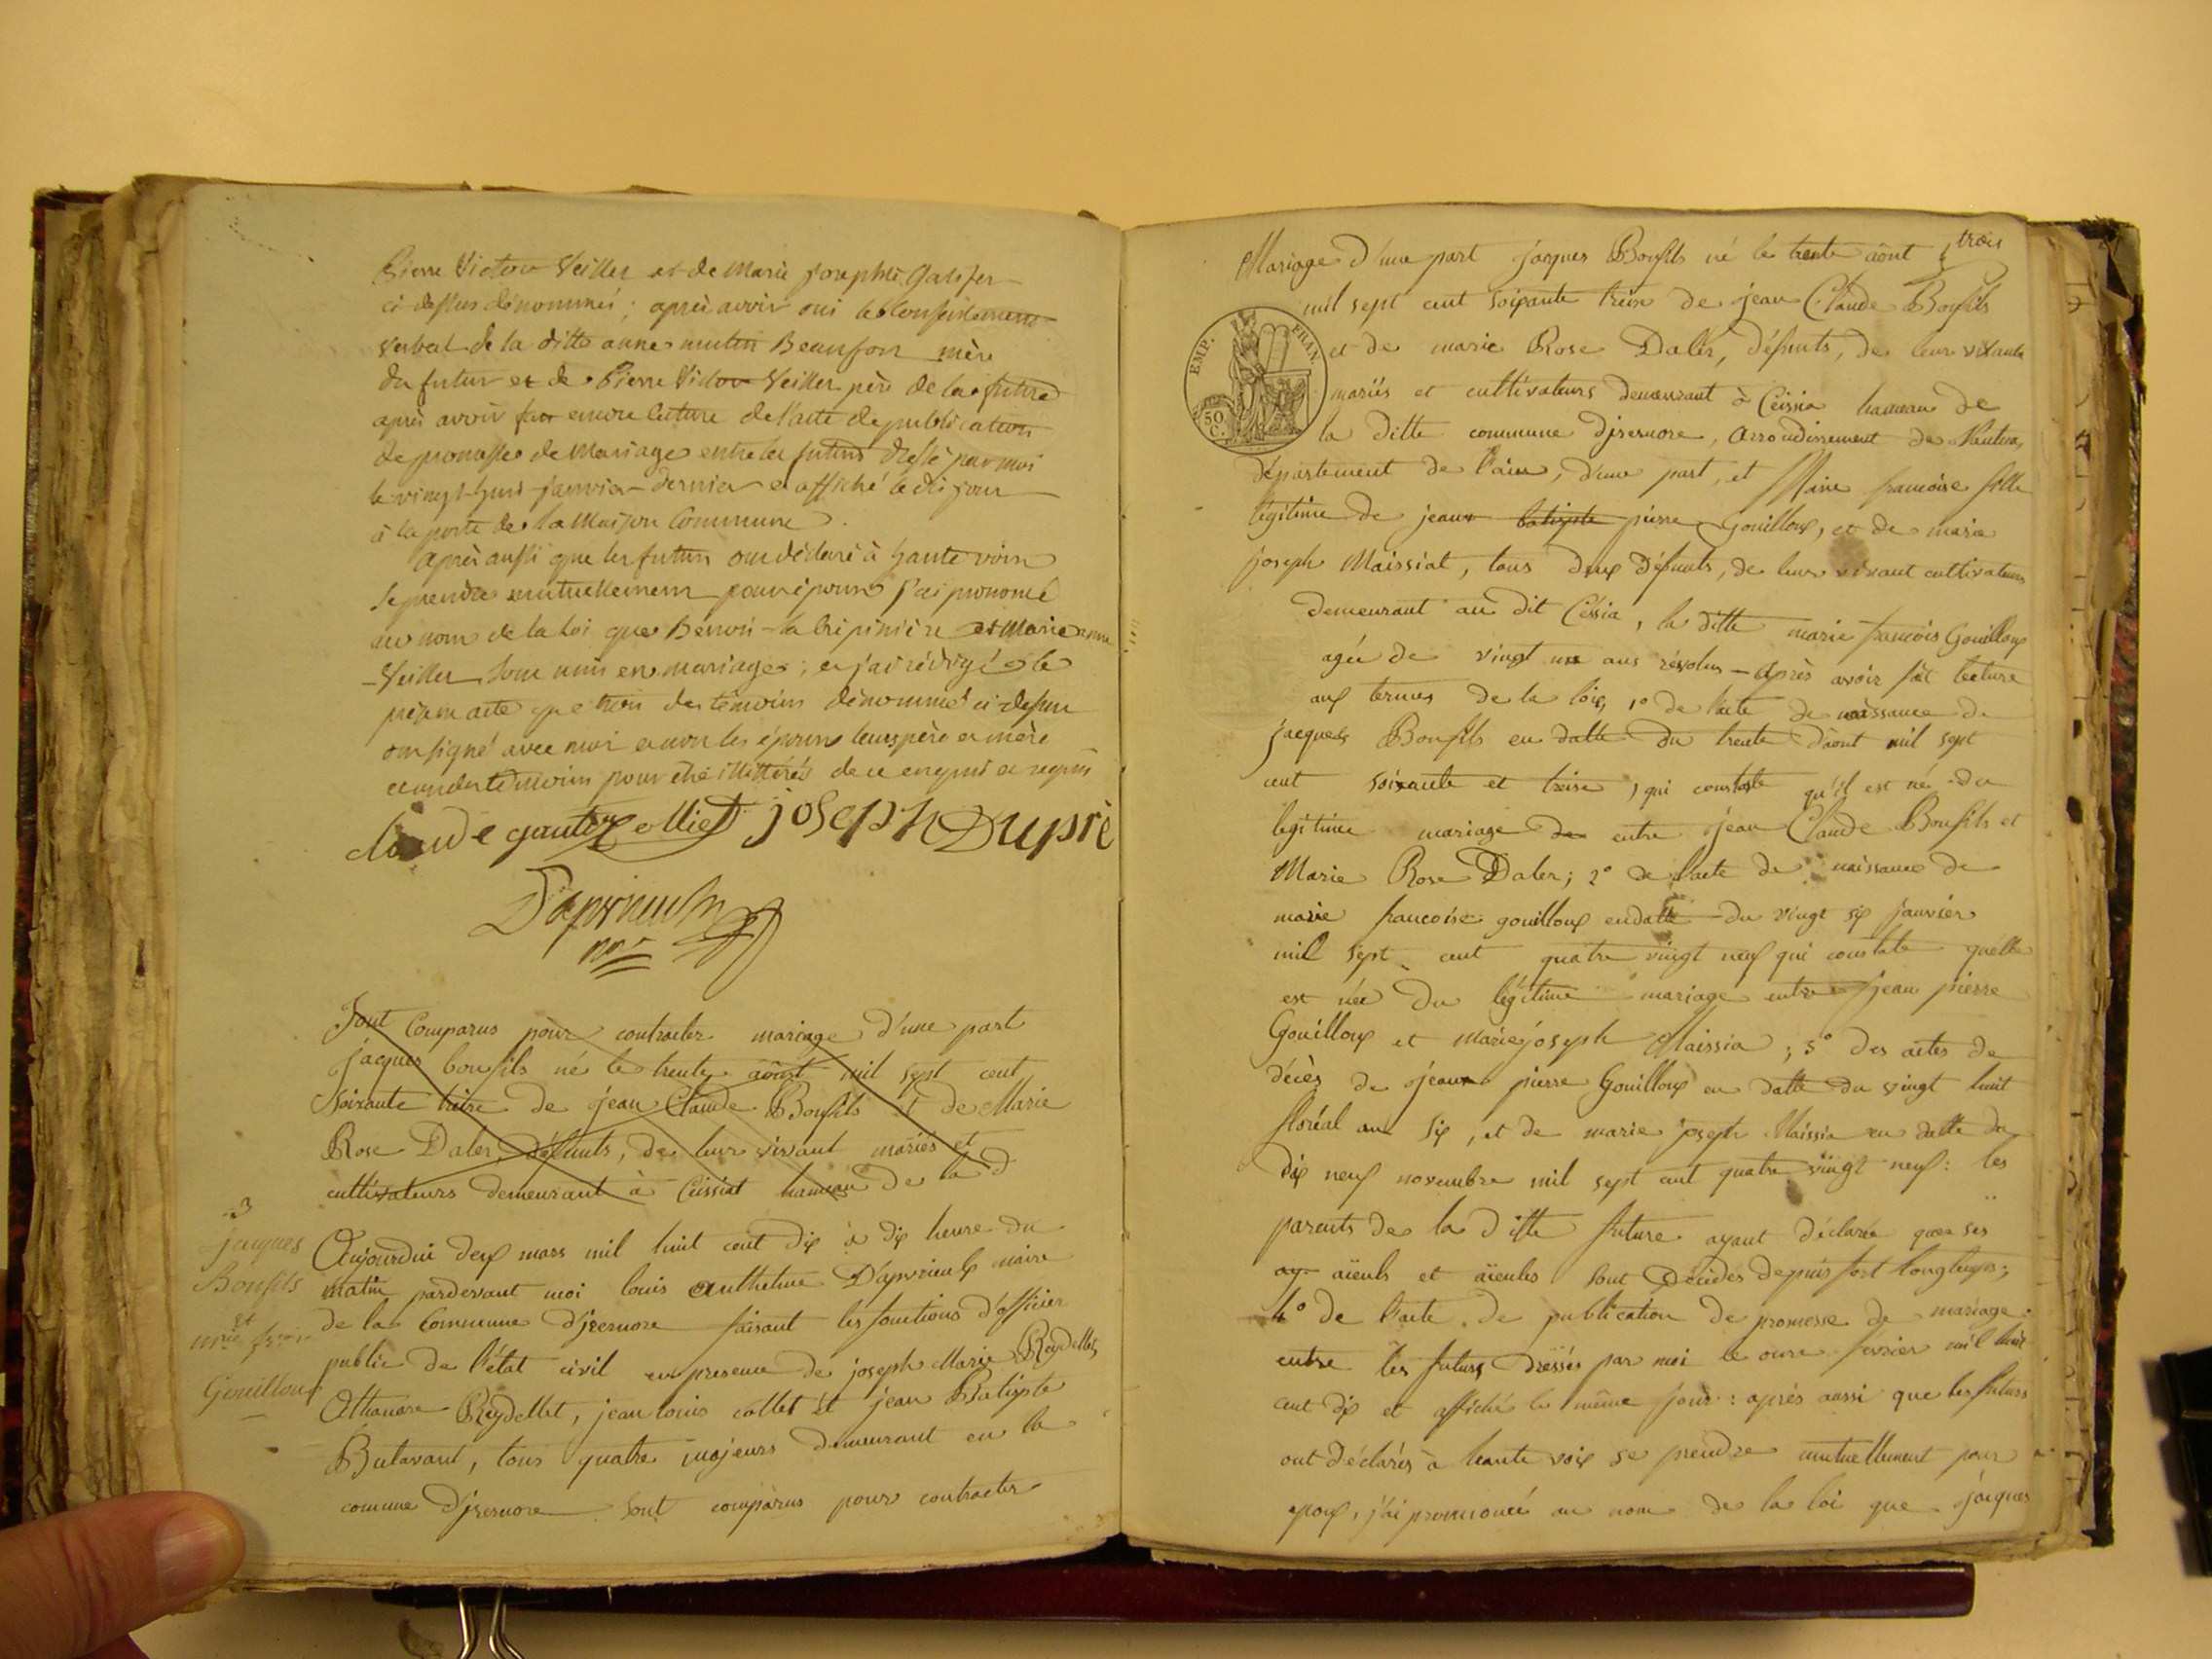 Pierre Victor Veiller et de Marie josephte Galifer
ci dessus dénommés ; après avoir oui le consentement
verbal de la ditte anne mutin Beaufort mère
du futur et de Pierre Victor Veiller père de la future
après avoir fait encore lecture de l'acte de publication
de promesse de Mariage entre les futurs dressé par moi
le vingt huit janvier dernier et affiché le dit jour
à la porte de la Maison Commune
après aussi que les futurs ont déclaré à haute voix
se prendre mutuellement pour époux j'ai prononcé
au nom de la loi que Benoit la et Marie anne
Veiller sont unis en mariage ; et j'ai rédigé le
présent acte que trois des témoins dénommés ci dessus
ont signé avec moi et non les époux leurs père et mère
et un des témoins pour être illittérés de ce enquis et requis
claude gautier collet joseph Dupré
Dapvrieulx
mre
Sont Comparus pour contracter mariage d'une part
jacques bonfils né le trente août mil sept cent
soixante treize de jean Claude Bonfils et de Marie
Rose Daler, défunts, de leur vivant mariés et
cultivateurs demeurant à Ceissiat hameau de la d
3
jacques
Bonfils
et
mrie frcoise
Gouilloux
Aujourdui deux mars mil huit cent dix à dix heure du
matin pardevant moi louis anthelme D'apvrieulx maire
de la Commune d'jzernore faisant les fonctions d'officier
public de l'état civil en presence de joseph Marie Reydellet,
Athanase Reydellet, jean louis collet et jean Batiste
Butavant, tous quatre majeurs demeurant en la
comune d'jzernore sont comparus pour contracter
Mariage d'une part jacques Bonfils né le trente août
trois
mil sept cent soixante treize de jean Claude Bonfils
et de marie Rose Daler, défunts, de leur vivant
mariés et cultivateurs demeurant à Ceissia hameau de
la ditte commune djzernore, arrondissement de Nantua,
EMP. FRAN.
50 C.
département de l'ain, d'une part, et Marie francoise fille
légitime de jean batiste pierre Gouilloux, et de marie
joseph Maissiat, tous deux défunts, de leur vivant cultivateurs
demeurant au dit Céssia, la ditte marie francois Gouilloux
agée de vingt un ans révolus – après avoir fait lecture
aux termes de la loix, 1º de l'acte de naissance de
jacques Bonfils en datte du trente d'aout mil sept
cent soixante et treise, qui constate qu'il est né du
legitime mariage de entre jean Claude Bonfils et
Marie Rose Daler ; 2º de l'acte de naissance de
marie francoise gouilloux endatte du vingt six janvier
mil sept cent quatre vingt neuf qui constate quélle
est née du légitime mariage entre jean pierre
Gouilloux et marie joseph Maissia ; 3º des actes de
décès de jean pierre Gouilloux en datte du vingt huit
floréal an six, et de marie joseph Maissia en datte du
dix neuf novembre mil sept cent quatre vingt neuf : les
parents de la ditte future ayant déclaré que ses
ay aïeuls et aïeules sont décidés depuis fort longtemps ;
4º de l'acte de publication de promesse de mariage
entre les futurs dressés par moi le onze février mil huit
cent dix et affiché le même jour : après aussi que les futurs
ont déclarés à haute voix se prendre mutuellement pour
epoux, j'ai prononcé au nom de la loi que jacques